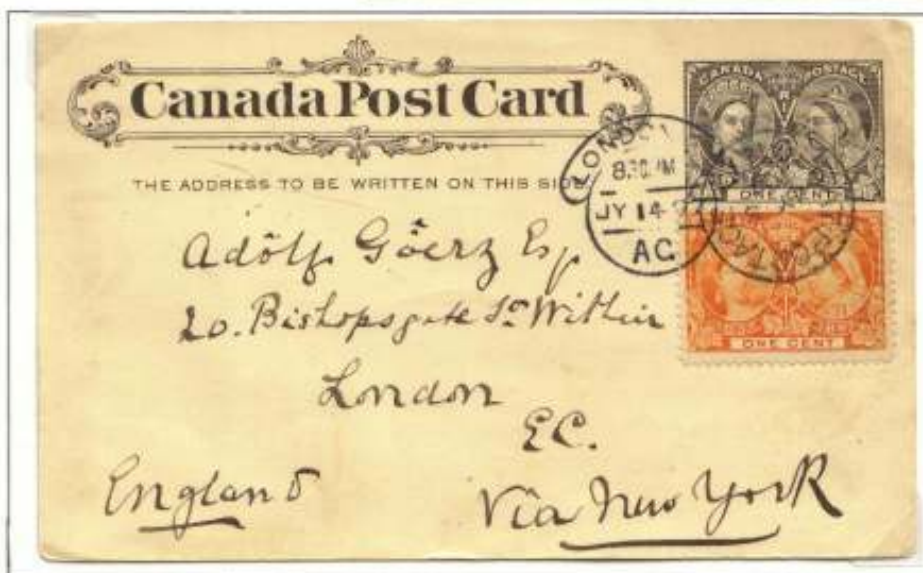 Canada Post Card
THE ADDRESS TO BE WRITTEN ON THIS SIDE
CANADA POSTAGE
ONE CENT
LONDON
8.30 PM
JY 14
AC
ONE CENT
Adölf Göerz Esq
20. Bishopsgate St. Within
London
E.C.
England
Via New York